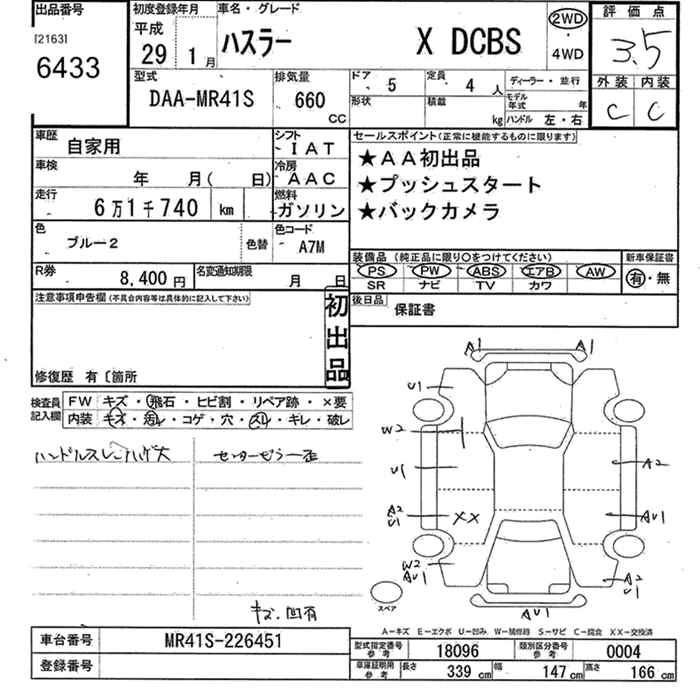 出品番号
[2163]
6433
初度登録年月
平成
29 1月
車名・グレード
ハスラー X DCBS
2WD
・
4WD
評価点
3.5
外装 内装
C C
型式
DAA-MR41S
排気量
660
CC
ドア 5
定員 4 人
形状
積載 kg
ディーラー・並行
モデル年式 年
ハンドル 左・右
車歴 自家用
シフト IAT
車検 年 月( 日)
冷房 AAC
走行 6万1千740 km
燃料 ガソリン
色 ブルー2 色替
色コード A7M
R券 8,400円
名変通知期限 月 日
セールスポイント(正常に機能するものに限ります)
★AA初出品
★プッシュスタート
★バックカメラ
装備品(純正品に限り○をつけてください)
新車保証書
PS PW ABS エアB AW
SR ナビ TV カワ
有・無
注意事項申告欄(不具合内容等は具体的に記入して下さい)
初出品
後日品 保証書
修復歴 有〔箇所
検査員記入欄
FW キズ・飛石・ヒビ割・リペア跡・×要
内装 キズ・汚レ・コゲ・穴・スレ・キレ・破レ
ハンドルスレ ハゲ大
キズ、凹有
A1 A1
U1
W2
U1
A2
U1
XX
W2
AU1
A2
AU1
A2
U1
AU1
スペア
A－キズ E－エクボ U－凹み W－補修跡 S－サビ C－腐食 XX－交換済
車台番号 MR41S-226451
登録番号
型式指定番号参考 18096
類別区分番号参考 0004
車庫証明用参考
長さ 339 cm
幅 147 cm
高さ 166 cm